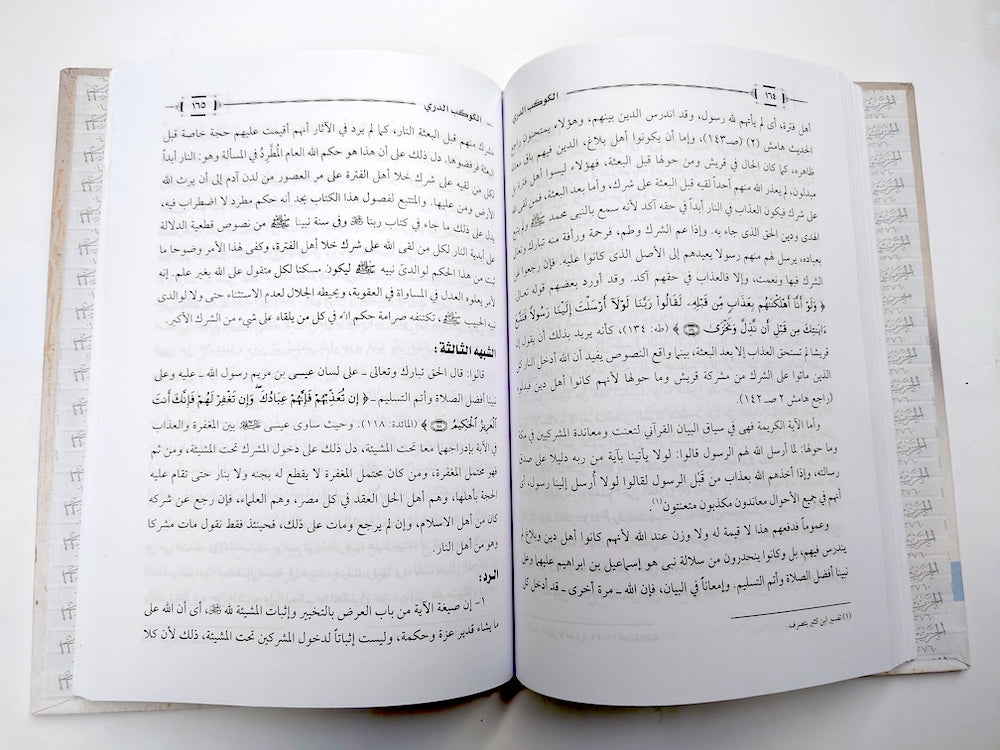 ١٦٤
الكوكب الدري
أهل فترة، أى لم يأتهم لله رسول، وقد اندرس الدين بينهم، وهؤلاء يمتحنون راجع
الحديث هامش (٢) (صـ١٤٣)، وإما أن يكونوا أهل بلاغ، الدين فيهم باق معالم
ظاهره، كما كان الحال في قريش ومن حولها قبل البعثة، فهؤلاء ليسوا أهل فترة بل
مبدلون، لم يعذر الله منهم أحداً لقيه قبل البعثة على شرك، وأما بعد البعثة، فمن لقى الله
على شرك فيكون العذاب في النار أبداً في حقه آكد لأنه سمع بالنبى محمد ﷺ
الهدى ودين الحق الذى جاء به. وإذا عم الشرك وطم، فرحمة ورأفة منه تبارك وتعالى
بعباده، يرسل لهم منهم رسولا يعيدهم إلى الأصل الذى كانوا عليه. فإن رجعوا عن
الشرك فبها ونعمت، وإلا فالعذاب في حقهم آكد. وقد أورد بعضهم قوله تعالى
﴿ وَلَوْ أَنَّا أَهْلَكْنَاهُم بِعَذَابٍ مِّن قَبْلِهِ لَقَالُوا رَبَّنَا لَوْلَا أَرْسَلْتَ إِلَيْنَا رَسُولًا فَنَتَّبِعَ
ءَايَاتِكَ مِن قَبْلِ أَن نَّذِلَّ وَنَخْزَى ﴾ (طه: ١٣٤)، كأنه يريد بذلك أن يقول إن
قريشا لم تستحق العذاب إلا بعد البعثة، بينما واقع النصوص يفيد أن الله أدخل النار كل
الذين ماتوا على الشرك من مشركة قريش وما حولها لأنهم كانوا أهل دين فبدلوا
(راجع هامش ٢ صـ ١٤٢).
وأما الآية الكريمة فهى في سياق البيان القرآني لتعنت ومعاندة المشركين في مكة
وما حولها: لما أرسل الله لهم الرسول قالوا: لولا يأتينا بآية من ربه دليلا على صدق
رسالته، وإذا أخذهم الله بعذاب من قَبْل الرسول لقالوا لولا أرسل إلينا رسول، أى
أنهم في جميع الأحوال معاندون مكذبون متعنتون(١).
وعموماً فدفعهم هذا لا قيمة له ولا وزن عند الله لأنهم كانوا أهل دين وبلاغ لم
يندرس فيهم، بل وكانوا ينحدرون من سلالة نبى هو إسماعيل بن ابراهيم عليهما وعلى
نبينا أفضل الصلاة وأتم التسليم. وإمعاناً في البيان، فإن الله ـ مرة أخرى ـ قد أدخل كل
(١) تفسير ابن كثير بتصرف.
الكوكب الدري
١٦٥
مشرك منهم قبل البعثة النار، كما لم يرد في الآثار أنهم أقيمت عليهم حجة خاصة قبل
البعثة فرفضوها. دل ذلك على أن هذا هو حكم الله العام المُطَّرِدُ في المسألة وهو: النار أبداً
لكل من لقيه على شرك خلا أهل الفترة على مر العصور من لدن آدم إلى أن يرث الله
الأرض ومن عليها. والمتتبع لفصول هذا الكتاب يجد أنه حكم مطرد لا اضطراب فيه،
يدل على ذلك ما جاء في كتاب ربنا ﷻ وفى سنة نبينا ﷺ من نصوص قطعية الدلالة
على أبدية النار لكل من لقى الله على شرك خلا أهل الفترة، وكفى لهذا الأمر وضوحا ما
ثبت من هذا الحكم لوالدىّ نبيه ﷺ ليكون مسكتا لكل متقول على الله بغير علم. إنه
لأمر يعلوه العدل في المساواة في العقوبة، ويحيطه الجلال لعدم الاستثناء حتى ولا لوالدى
نبيه الحبيب ﷺ، تكتنفه صرامة حكم انه في كل من يلقاه على شيء من الشرك الأكبر.
الشبهه الثالثة:
قالوا: قال الحق تبارك وتعالى ـ على لسان عيسى بن مريم رسول الله ـ عليه وعلى
نبينا أفضل الصلاة وأتم التسليم ـ ﴿ إِن تُعَذِّبْهُمْ فَإِنَّهُمْ عِبَادُكَ وَإِن تَغْفِرْ لَهُمْ فَإِنَّكَ أَنتَ
الْعَزِيزُ الْحَكِيمُ ﴾ (المائدة: ١١٨). وحيث ساوى عيسى ﷺ بين المغفرة والعذاب
في الآية بإدراجهما معا تحت المشيئة، دل ذلك على دخول المشرك تحت المشيئة، ومن ثم
فهو محتمل المغفرة، ومن كان محتمل المغفرة لا يقطع له بجنه ولا بنار حتى تقام عليه
الحجة بأهلها، وهم أهل الحل العقد في كل مصر، وهم العلماء، فإن رجع عن شركه
كان من أهل الاسلام، وإن لم يرجع ومات على ذلك، فحينئذ فقط نقول مات مشركا
وهو من أهل النار.
الرد:
١- إن صيغة الآية من باب العرض بالتخيير وإثبات المشيئة لله ﷻ، أى أن الله على
ما يشاء قدير عزة وحكمة، وليست إثباتاً لدخول المشركين تحت المشيئة، ذلك لأن كلا